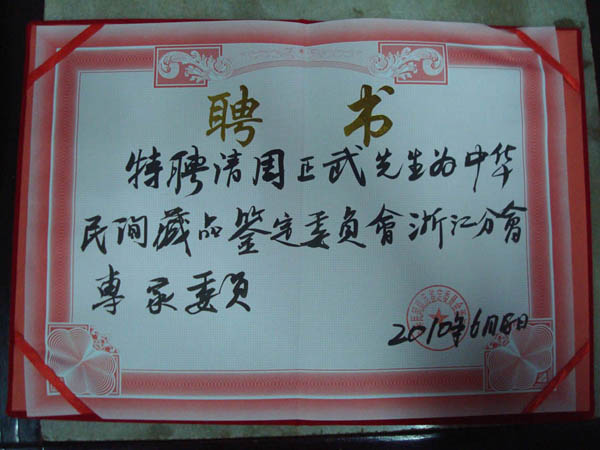 聘书
特聘请周正武先生为中华
民间藏品鉴定委员會浙江分會
專家委员
2010年6月8日